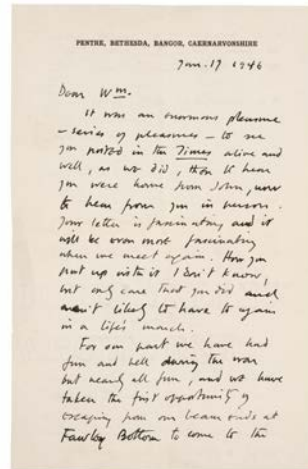 PENTRE, BETHESDA, BANGOR, CAERNARVONSHIRE
Jan. 17 1946
Dear Wm.
It was an enormous pleasure
– series of pleasures – to see
you posted in the Times alive and
well, as we did, then to hear
you were home from John, now
to hear from you in person.
Your letter is fascinating and it
will be even more fascinating
when we meet again. How you
put up with it I don't know,
but only care that you did and
aren't likely to have to again
in a life's march.
For our part we have had
fun and hell during the war
but nearly all fun, and we have
taken the first opportunity of
escaping from our beam ends at
Fawley Bottom to come to the